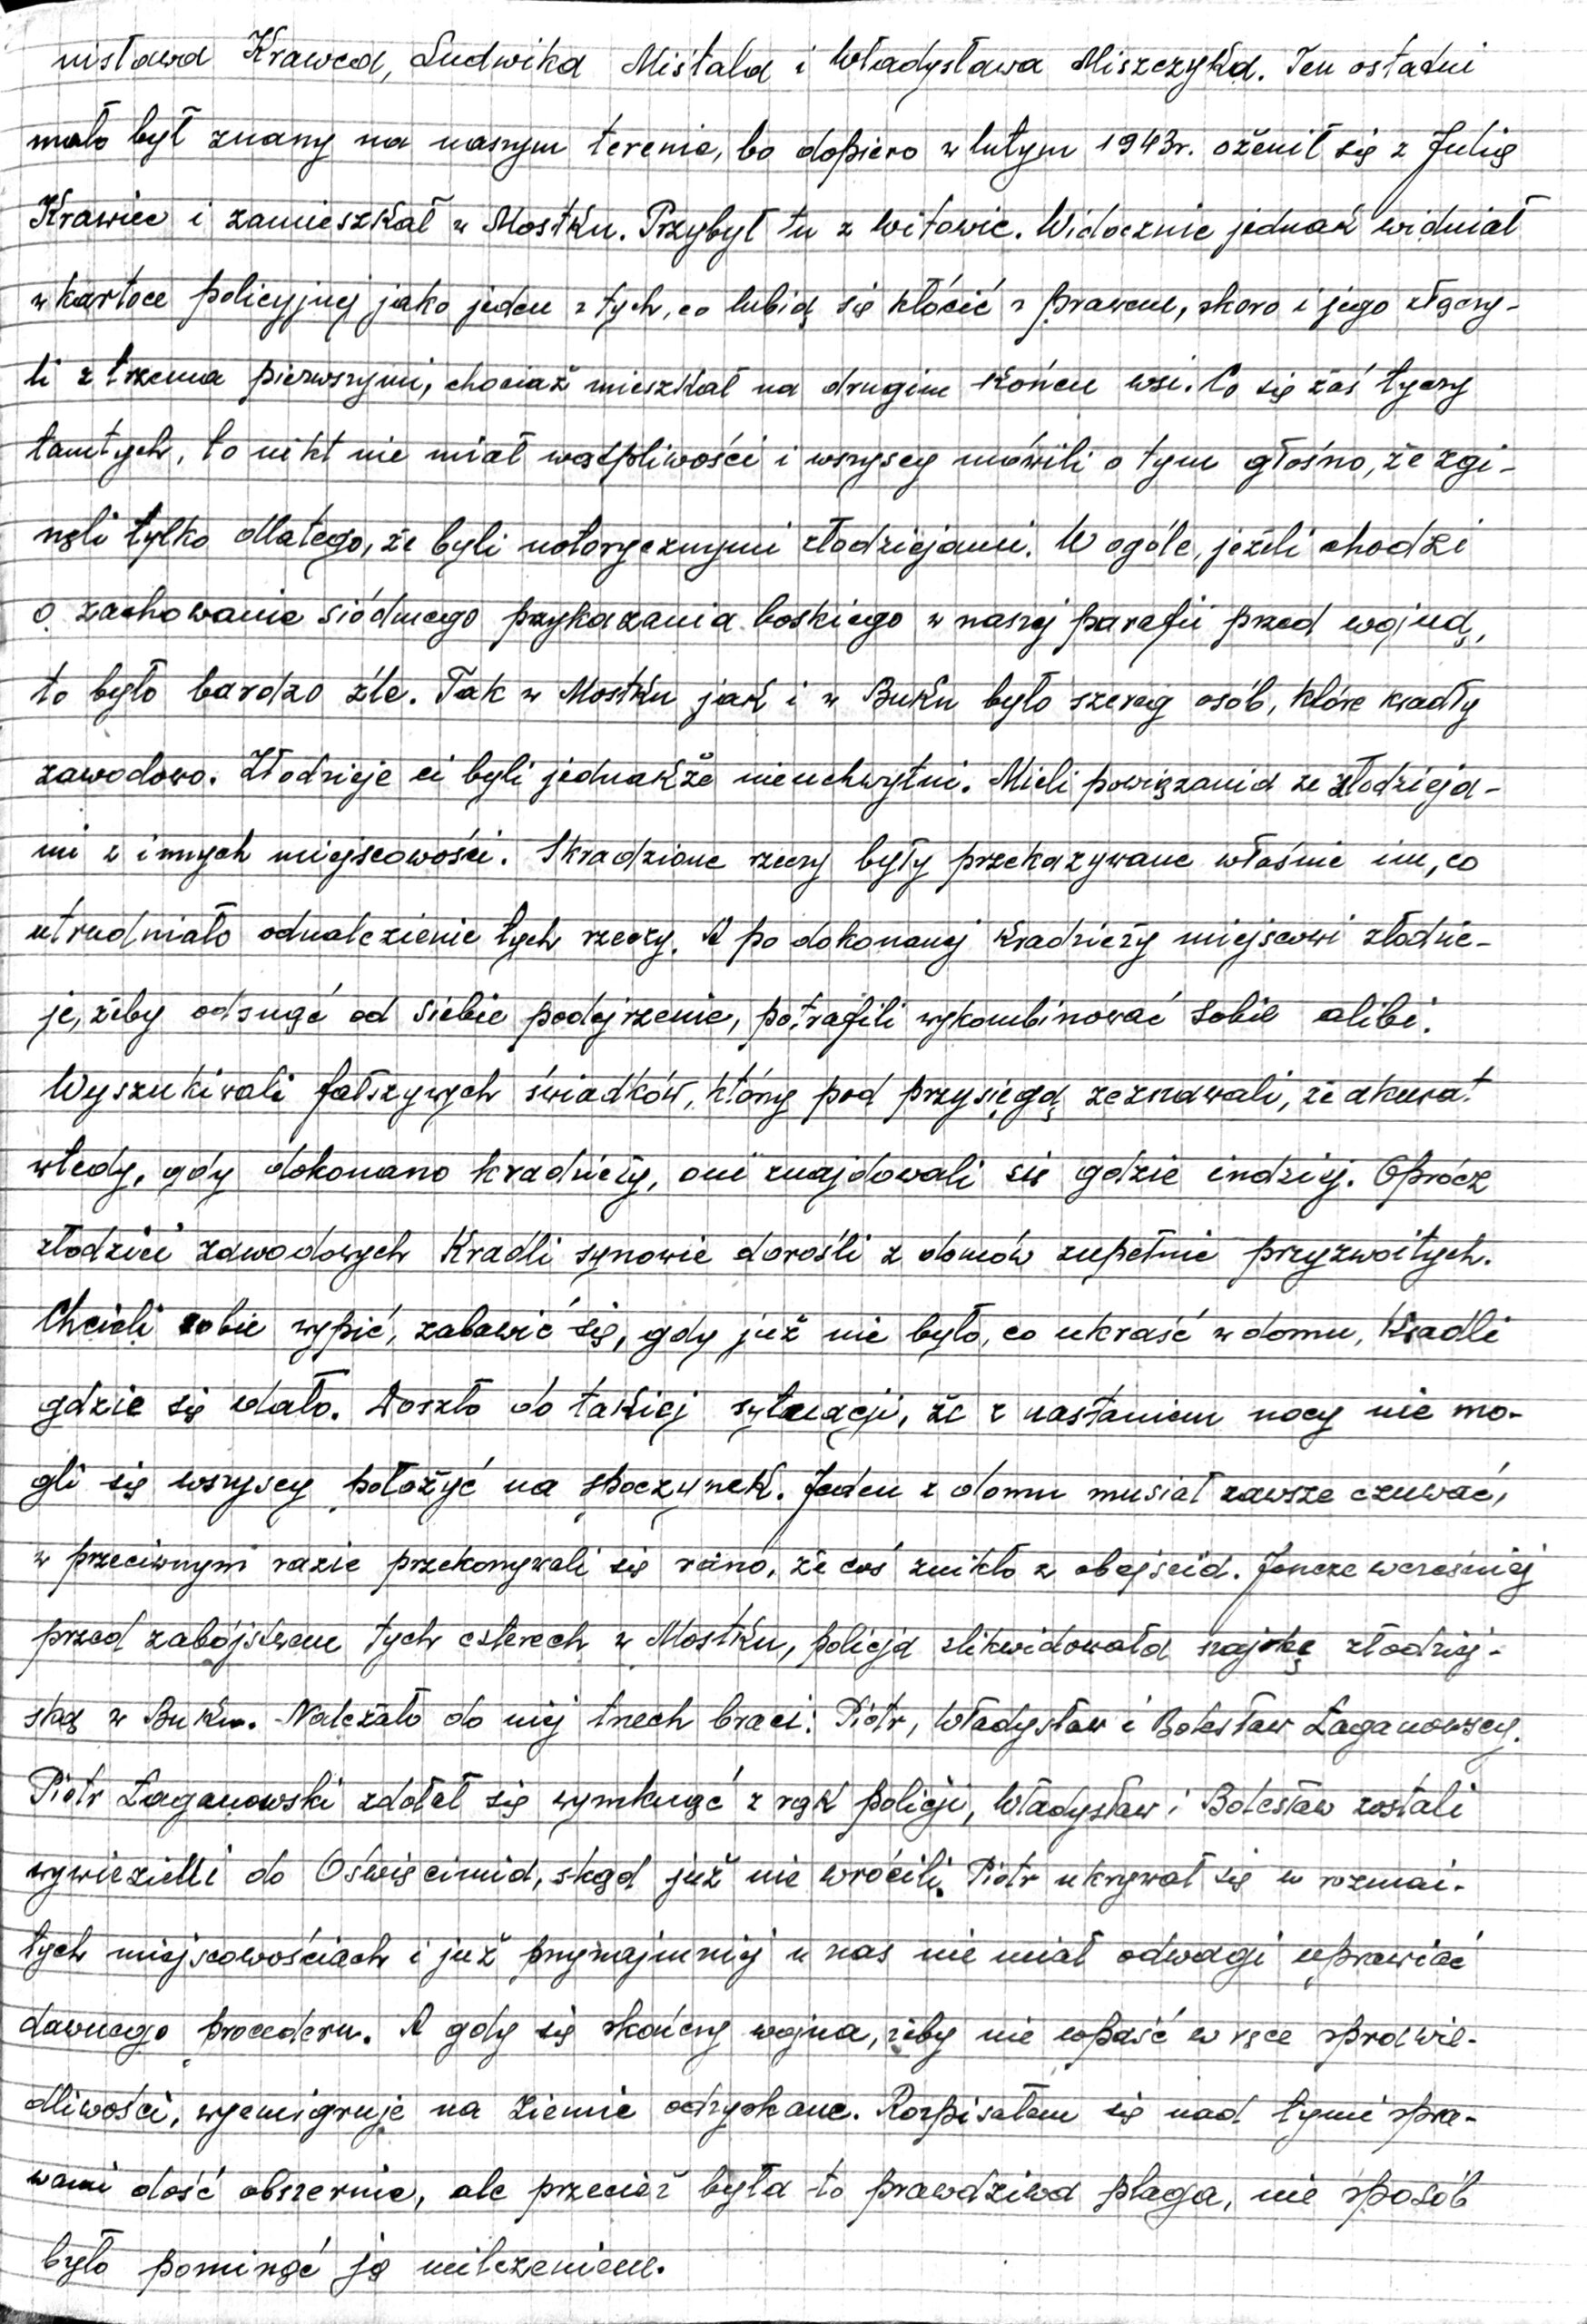 nisława Krawca, Ludwika Miśtala i Władysława Miszczyka. Ten ostatni
mało był znany na naszym terenie, bo dopiero w lutym 1943r. ożenił się z Julią
Krawiec i zamieszkał w Mostku. Przybył tu z Witowic. Widocznie jednak widniał
w kartoce policyjnej jako jeden z tych, co lubią się kłócić z prawem, skoro i jego złączy-
li z trzema pierwszymi, chociaż mieszkał na drugim końcu wsi. Co się zaś tyczy
tamtych, to nikt nie miał wątpliwości i wszyscy mówili o tym głośno, że zgi-
nęli tylko dlatego, że byli notorycznymi złodziejami. W ogóle, jeżeli chodzi
o zachowanie siódmego przykazania boskiego w naszej parafii przed wojną,
to było bardzo źle. Tak w Mostku jak i w Buku było szereg osób, które kradły
zawodowo. Złodzieje ci byli jednakże nieuchwytni. Mieli powiązania ze złodzieja-
mi z innych miejscowości. Skradzione rzeczy były przekazywane właśnie im, co
utrudniało odnalezienie tych rzeczy. A po dokonanej kradzieży miejscowi złodzie-
je, żeby odsunąć od siebie podejrzenie, potrafili wykombinować sobie alibi.
Wyszukiwali fałszywych świadków, którzy pod przysięgą zeznawali, że akurat
wtedy, gdy dokonano kradzieży, oni znajdowali się gdzie indziej. Oprócz
złodziei zawodowych kradli synowie dorośli z domów zupełnie przyzwoitych.
Chcieli sobie wypić, zabawić się, gdy już nie było, co ukraść w domu, kradli
gdzie się udało. Doszło do takiej sytuacji, że z nastaniem nocy nie mo-
gli się wszyscy położyć na spoczynek. Jeden z domu musiał zawsze czuwać,
w przeciwnym razie przekonywali się rano, że coś znikło z obejścia. Jeszcze wcześniej
przed zabójstwem tych czterech w Mostku, policja zlikwidowała szajkę złodziej-
ską w Buku. Należało do niej trzech braci: Piotr, Władysław i Bolesław Łaganowscy.
Piotr Łaganowski zdołał się wymknąć z rąk policji, Władysław i Bolesław zostali
wywiezieni do Oświęcimia, skąd już nie wrócili. Piotr ukrywał się w rozmai-
tych miejscowościach i już przynajmniej u nas nie miał odwagi uprawiać
dawnego procederu. A gdy się skończy wojna, żeby nie wpaść w ręce sprawie-
dliwości, wyemigruje na Ziemie odzyskane. Rozpisałem się nad tymi spra-
wami dość obszernie, ale przecież była to prawdziwa plaga, nie sposób
było pominąć ją milczeniem.